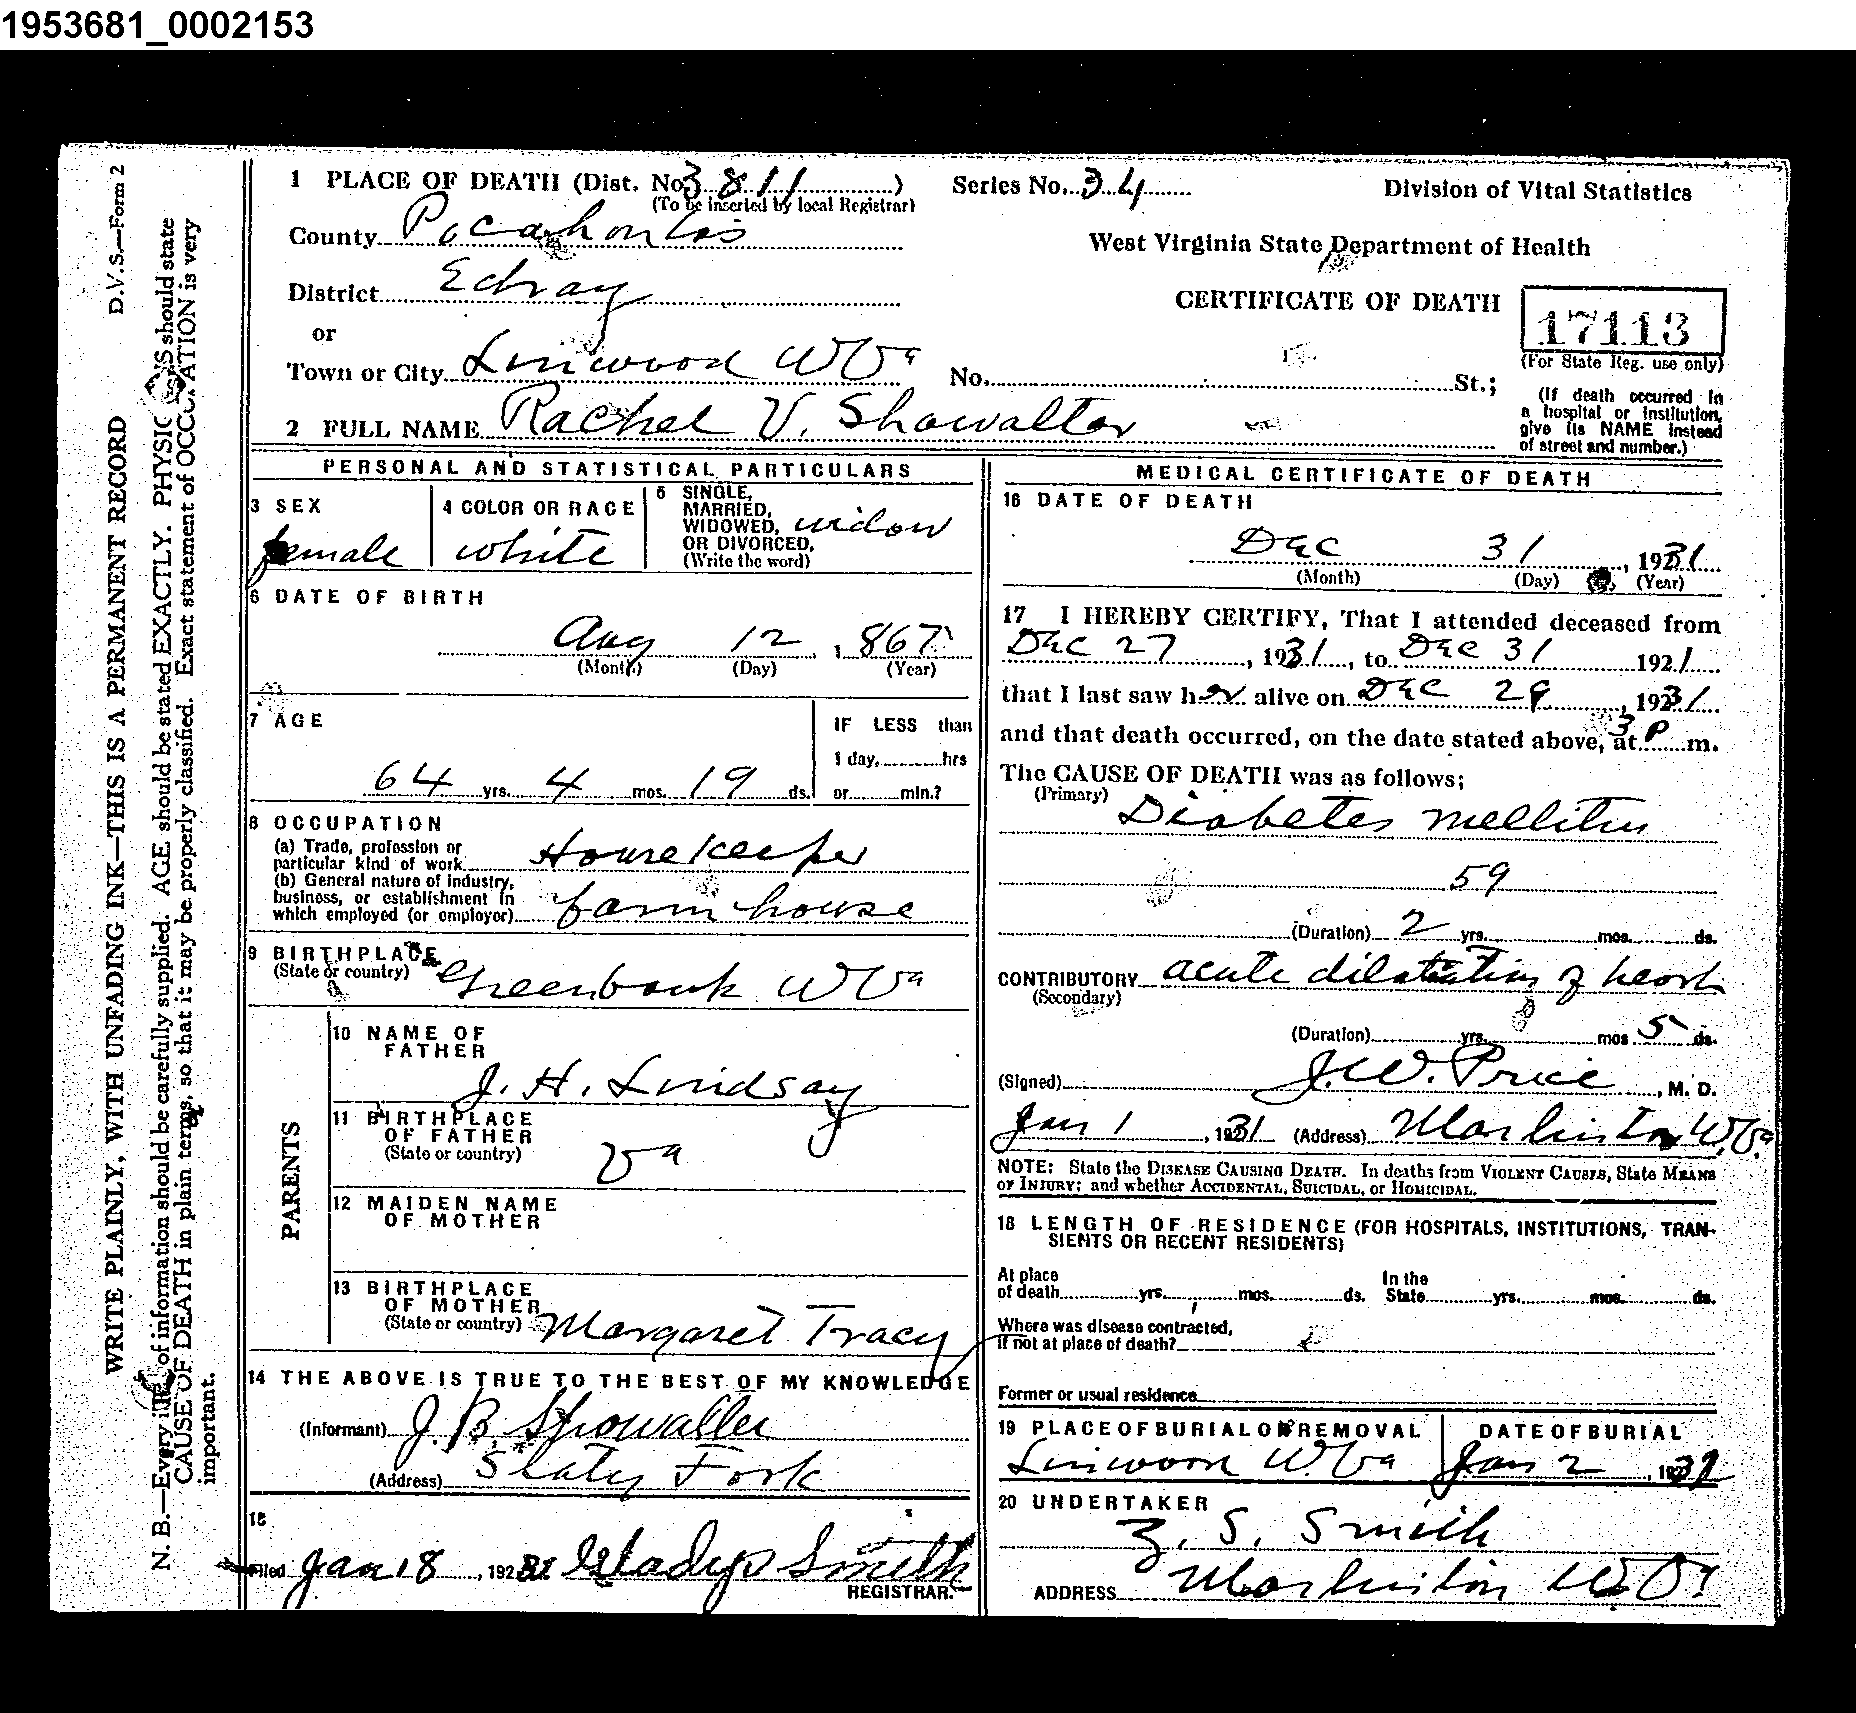 1953681_0002153
D.V.S.—Form 2
WRITE PLAINLY, WITH UNFADING INK—THIS IS A PERMANENT RECORD
N. B.—Every of information should be carefully supplied. AGE should be stated EXACTLY. PHYSIC should state
CAUSE OF DEATH in plain terms, so that it may be properly classified. Exact statement of OCCUPATION is very
important.
1 PLACE OF DEATH (Dist. No. 3811) Series No. 34 Division of Vital Statistics
(To be inserted by local Registrar)
County Pocahontas
West Virginia State Department of Health
District Edray
CERTIFICATE OF DEATH
17113
(For State Reg. use only)
or
Town or City Linwood W Va No. St.;
(If death occurred in
a hospital or institution,
give its NAME instead
of street and number.)
2 FULL NAME Rachel V. Showalter
PERSONAL AND STATISTICAL PARTICULARS
3 SEX
female
4 COLOR OR RACE
white
5 SINGLE,
MARRIED,
WIDOWED,
OR DIVORCED,
(Write the word)
widow
6 DATE OF BIRTH
Aug 12, 1867
(Month) (Day) (Year)
7 AGE
64 yrs. 4 mos. 19 ds.
IF LESS than
1 day, hrs
or min.?
8 OCCUPATION
(a) Trade, profession or
particular kind of work Housekeeper
(b) General nature of industry,
business, or establishment in
which employed (or employer) farm house
9 BIRTHPLACE
(State or country) Greenbank W Va
PARENTS
10 NAME OF
FATHER
J. H. Lindsay
11 BIRTHPLACE
OF FATHER
(State or country) Va
12 MAIDEN NAME
OF MOTHER
13 BIRTHPLACE
OF MOTHER
(State or country) Margaret Tracy
14 THE ABOVE IS TRUE TO THE BEST OF MY KNOWLEDGE
(Informant) J. B. Showalter
(Address) Slaty Fork
15
Filed Jan 18, 192 Gladys Smith
REGISTRAR.
MEDICAL CERTIFICATE OF DEATH
16 DATE OF DEATH
Dec 31, 1931
(Month) (Day) (Year)
17 I HEREBY CERTIFY, That I attended deceased from
Dec 27, 1931, to Dec 31 1921
that I last saw her alive on Dec 29, 1931
and that death occurred, on the date stated above, at 3 P m.
The CAUSE OF DEATH was as follows;
(Primary) Diabetes mellitus
59
(Duration) 2 yrs. mos. ds.
CONTRIBUTORY acute dilatation of heart
(Secondary)
(Duration) yrs. mos 5 ds.
(Signed) J.W. Price, M. D.
Jan 1, 1931 (Address) Marlinton W. Va.
NOTE: State the DISEASE CAUSING DEATH. In deaths from VIOLENT CAUSES, State MEANS
OF INJURY; and whether ACCIDENTAL, SUICIDAL, or HOMICIDAL.
18 LENGTH OF RESIDENCE (FOR HOSPITALS, INSTITUTIONS, TRAN-
SIENTS OR RECENT RESIDENTS)
At place
of death yrs. mos. ds.
In the
State yrs. mos. ds.
Where was disease contracted,
if not at place of death?
Former or usual residence
19 PLACE OF BURIAL OR REMOVAL
Linwood W. Va
DATE OF BURIAL
Jan 2, 1932
20 UNDERTAKER
Z. S. Smith
ADDRESS Marlinton W Va